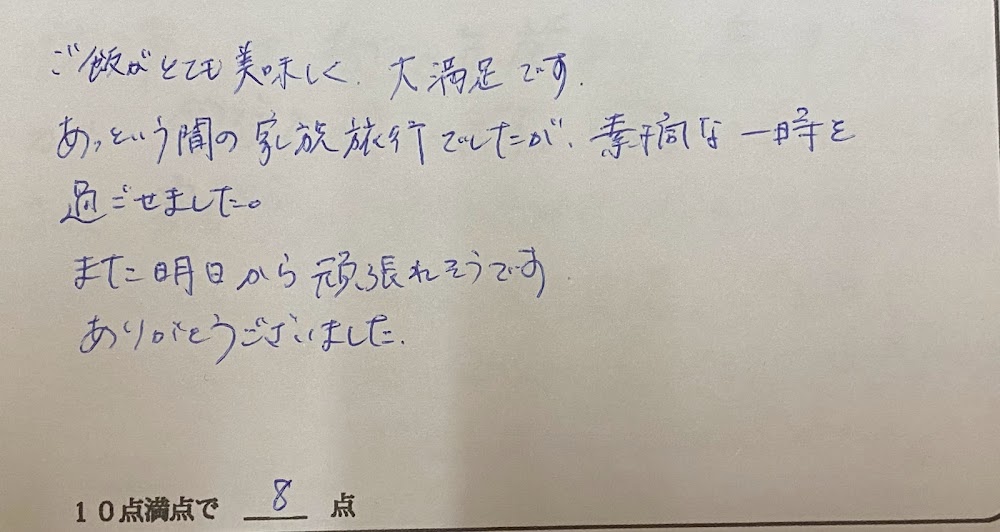 ご飯がとても美味しく、大満足です.
あっという間の家族旅行でしたが、素敵な一時を
過ごせました。
また明日から頑張れそうです.
ありがとうございました.
10点満点で 8 点